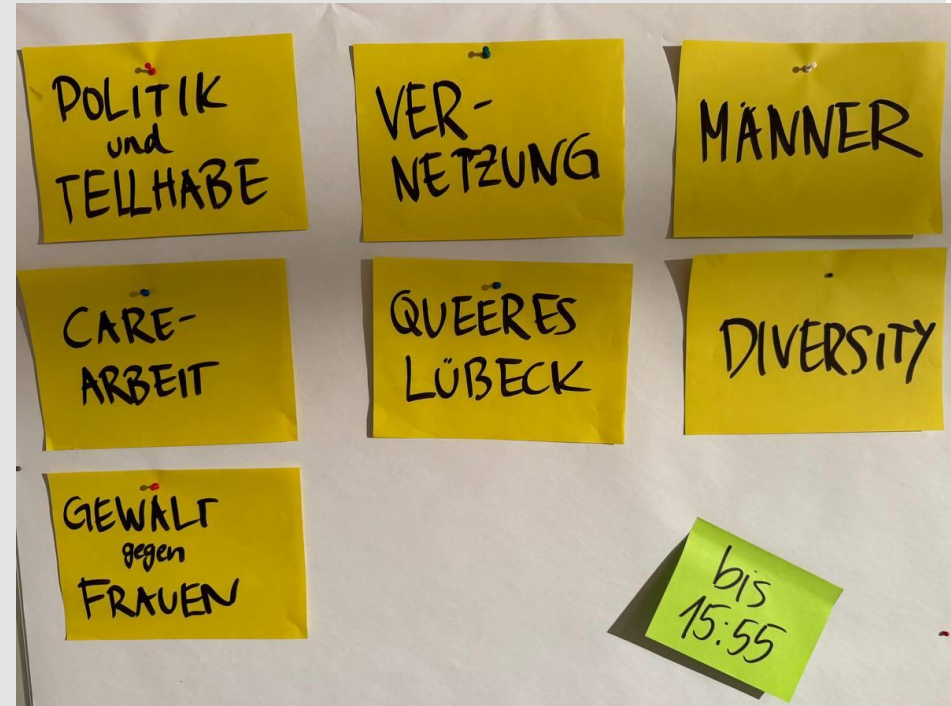 POLITIK
und
TEILHABE
VER-
NETZUNG
MÄNNER
CARE-
ARBEIT
QUEERES
LÜBECK
DIVERSITY
GEWALT
gegen
FRAUEN
bis
15:55